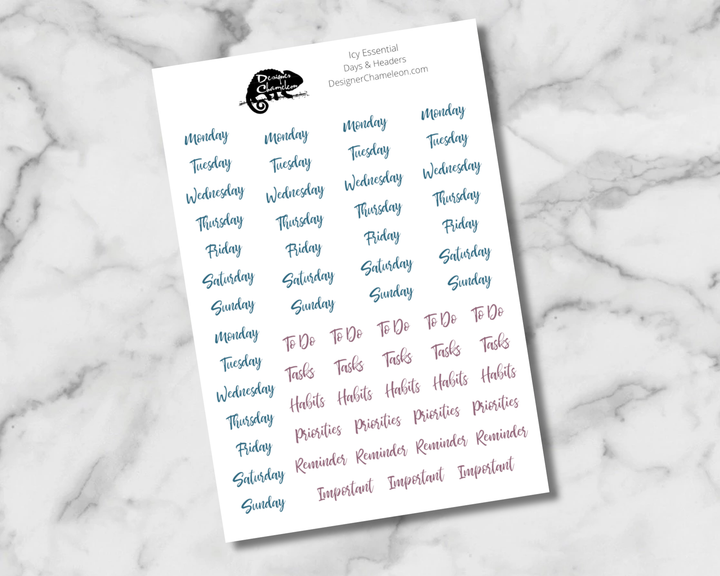 Designer
Chameleon
Icy Essential
Days & Headers
DesignerChameleon.com
Monday Monday Monday Monday
Tuesday Tuesday Tuesday Tuesday
Wednesday Wednesday Wednesday Wednesday
Thursday Thursday Thursday Thursday
Friday Friday Friday Friday
Saturday Saturday Saturday Saturday
Sunday Sunday Sunday Sunday
Monday To Do To Do To Do To Do To Do
Tuesday Tasks Tasks Tasks Tasks Tasks
Wednesday Habits Habits Habits Habits Habits
Thursday Priorities Priorities Priorities Priorities
Friday Reminder Reminder Reminder Reminder
Saturday Important Important Important
Sunday